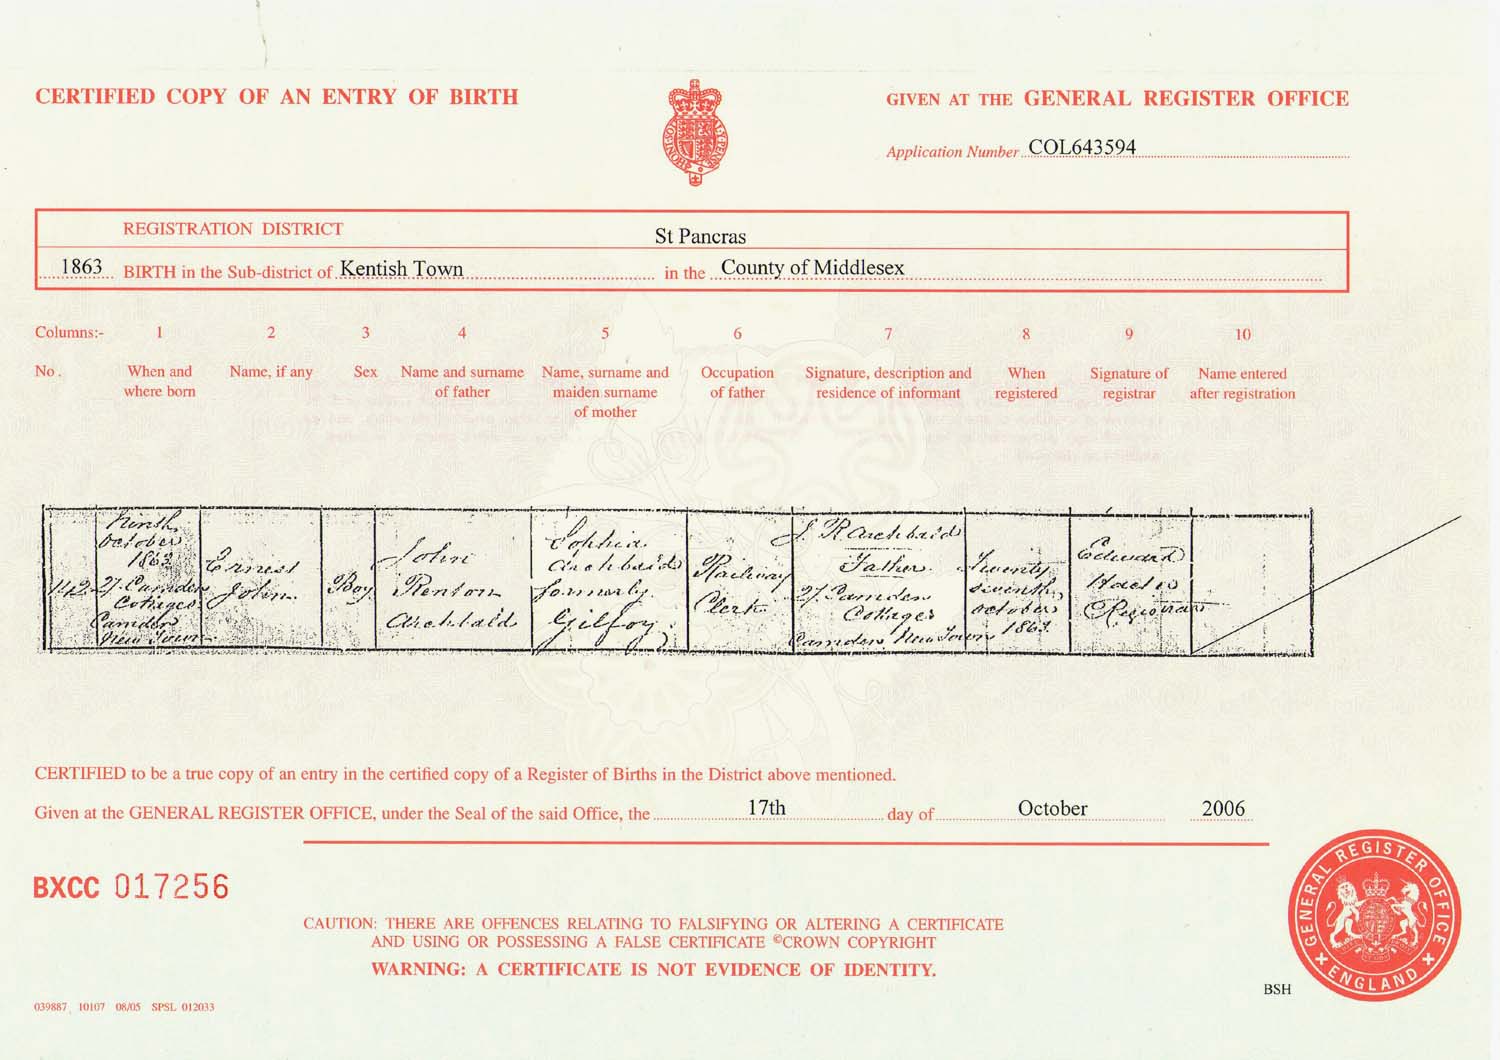 CERTIFIED COPY OF AN ENTRY OF BIRTH
GIVEN AT THE GENERAL REGISTER OFFICE
Application Number COL643594
REGISTRATION DISTRICT St Pancras
1863 BIRTH in the Sub-district of Kentish Town in the County of Middlesex
Columns:- 1 2 3 4 5 6 7 8 9 10
No. When and where born
Name, if any
Sex
Name and surname of father
Name, surname and maiden surname of mother
Occupation of father
Signature, description and residence of informant
When registered
Signature of registrar
Name entered after registration
142
Ninth
October
1863
27 Camden
Cottages
Camden
New Town
Ernest
John
Boy
John
Renton
Archbald
Sophia
Archbald
formerly
Gilfoy
Railway
Clerk
J. R Archbald
Father
27 Camden
Cottages
Camden New Town
Twenty
seventh
October
1863
Edward
Registrar
CERTIFIED to be a true copy of an entry in the certified copy of a Register of Births in the District above mentioned.
Given at the GENERAL REGISTER OFFICE, under the Seal of the said Office, the 17th day of October 2006
BXCC 017256
CAUTION: THERE ARE OFFENCES RELATING TO FALSIFYING OR ALTERING A CERTIFICATE
AND USING OR POSSESSING A FALSE CERTIFICATE ©CROWN COPYRIGHT
WARNING: A CERTIFICATE IS NOT EVIDENCE OF IDENTITY.
039887 10107 08/05 SPSL 012033
BSH
GENERAL REGISTER OFFICE
ENGLAND